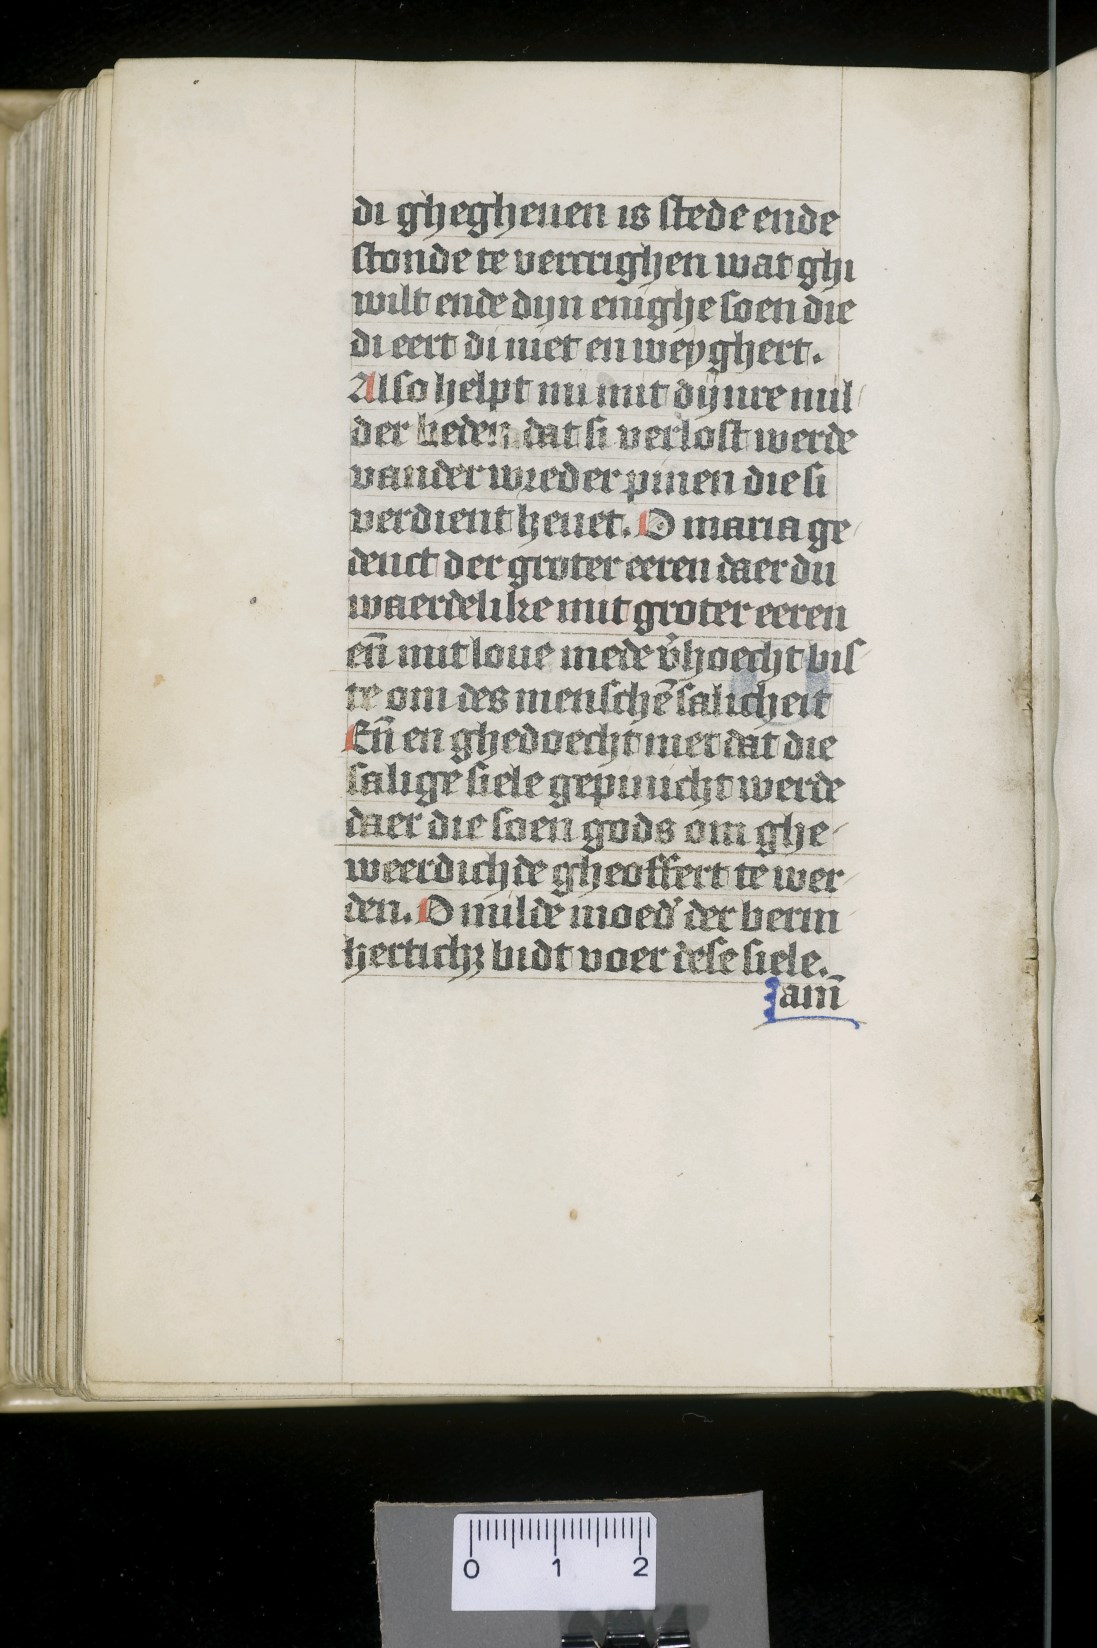 di ghegheuen is stede ende
stonde te vercrighen wat ghi
wilt ende dijn enighe soen die
di eert di niet en weyghert.
Also helpt nu mit dijnre mil
der heden dat si verlost werde
vander wreder pinen die si
verdient heuet. O maria ge
denct der groter eeren daer du
waerdelike mit groter eeren
en̄ mit loue mede v̓hoecht bis
te om des menschē salicheit
En̄ en ghedoecht niet dat die
salige siele gepinicht werde
daer die soen gods om ghe
weerdichde gheoffert te wer
den. O milde moed̓ der berm
hertichꝫ bidt voer dese siele.
am̄
0 1 2